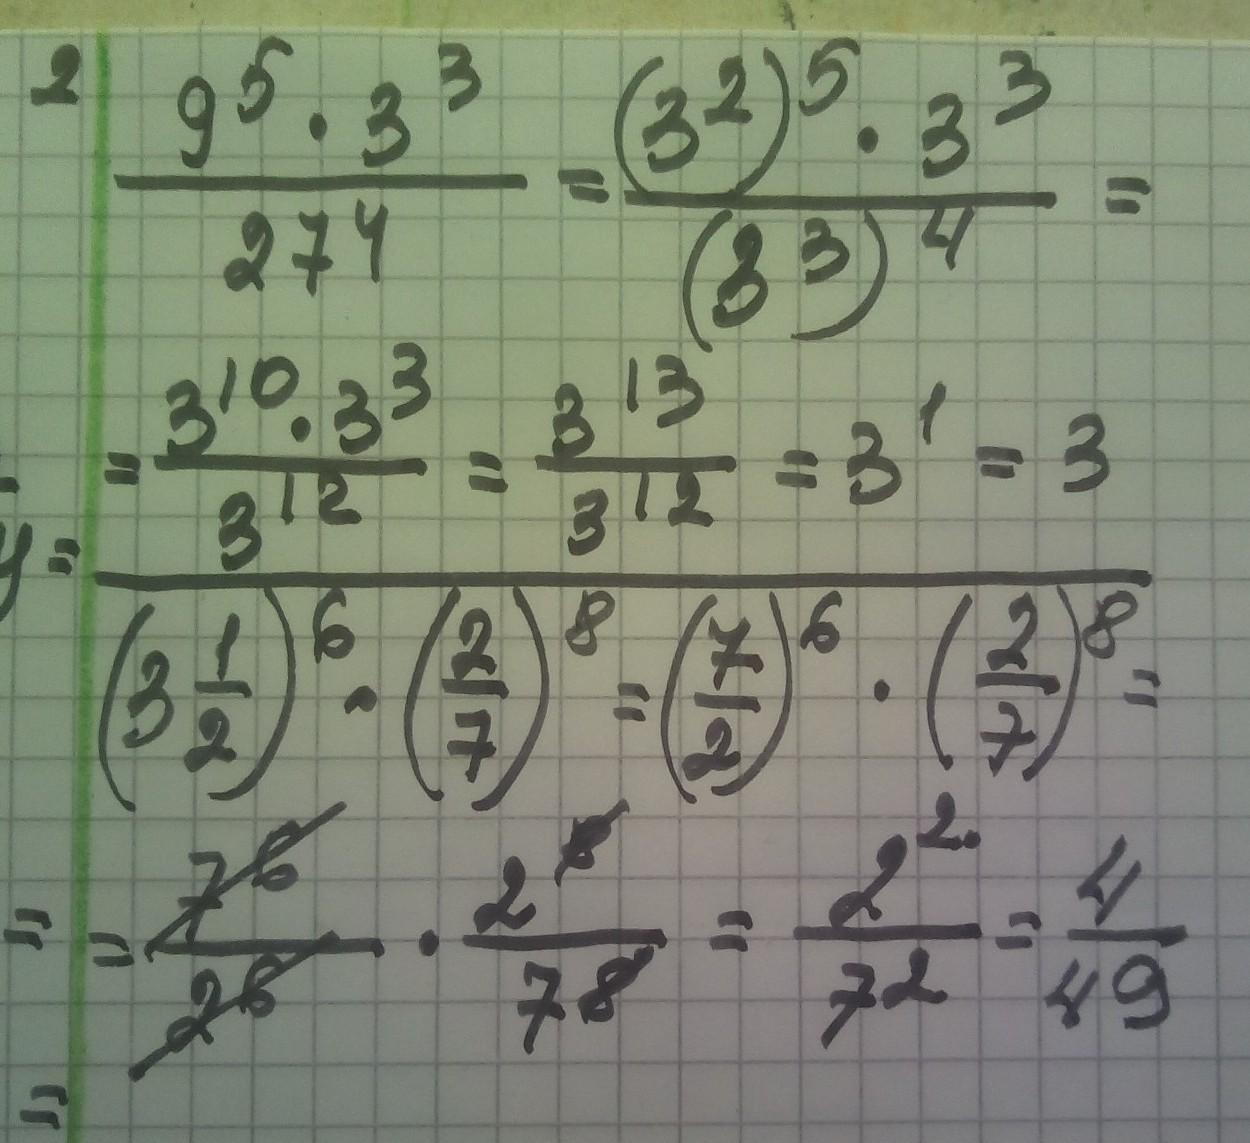 2
9⁵ · 3³ / 27⁴ = (3²)⁵ · 3³ / (3³)⁴ =
= 3¹⁰ · 3³ / 3¹² = 3¹³ / 3¹² = 3¹ = 3
y =
(3 1/2)⁶ · (2/7)⁸ = (7/2)⁶ · (2/7)⁸ =
= = 7⁶/2⁶ · 2⁸/7⁸ = 2²/7² = 4/49
=